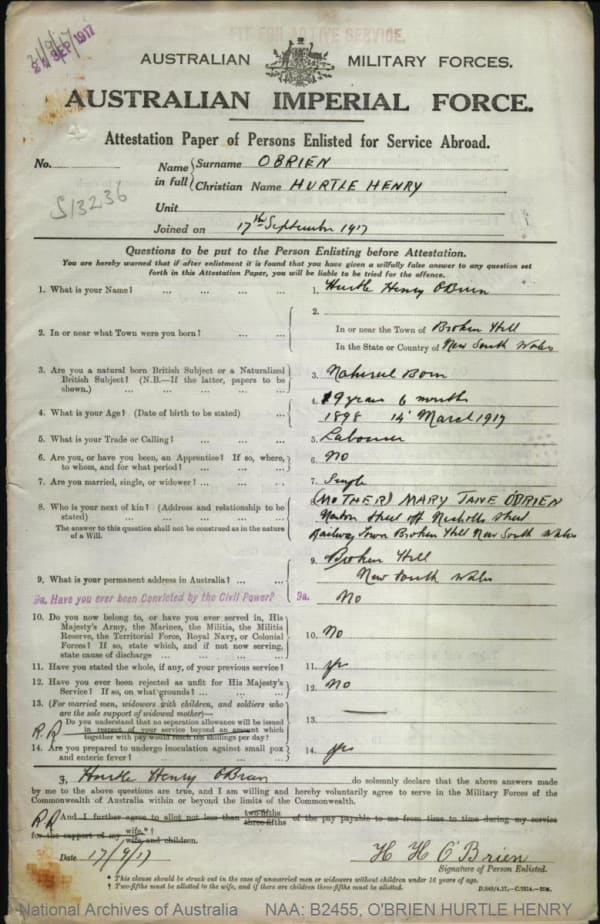 FIT FOR ACTIVE SERVICE.
21/9/17
SEP 1917
AUSTRALIAN MILITARY FORCES.
AUSTRALIAN IMPERIAL FORCE.
Attestation Paper of Persons Enlisted for Service Abroad.
No.
Name in full
Surname OBRIEN
Christian Name HURTLE HENRY
S13236
Unit
Joined on 17th September 1917
Questions to be put to the Person Enlisting before Attestation.
You are hereby warned that if after enlistment it is found that you have given a wilfully false answer to any question set
forth in this Attestation Paper, you will be liable to be tried for the offence.
1. What is your Name? ... ... ... ... 1. Hurtle Henry O'Brien
2. In or near what Town were you born? ... ... 2.
In or near the Town of Broken Hill
In the State or Country of New South Wales
3. Are you a natural born British Subject or a Naturalized
British Subject? (N.B.—If the latter, papers to be
shown.) ... ... ... ... 3. Natural Born
4. What is your Age? (Date of birth to be stated) ... 4. 19 years 6 months
1898 14 March 1917
5. What is your Trade or Calling? ... ... ... 5. Labourer
6. Are you, or have you been, an Apprentice? If so, where,
to whom, and for what period? ... ... ... 6. NO
7. Are you married, single, or widower? ... ... 7. Single
8. Who is your next of kin? (Address and relationship to be
stated) ... ... ... ... 8. (MOTHER) MARY JANE O'BRIEN
The answer to this question shall not be construed as in the nature
of a Will.
Street off Nicholls Street
Railway Town Broken Hill New South Wales
9. What is your permanent address in Australia? ... ... 9. Broken Hill
New South Wales
9a. Have you ever been Convicted by the Civil Power? 9a. No
10. Do you now belong to, or have you ever served in, His
Majesty's Army, the Marines, the Militia, the Militia
Reserve, the Territorial Force, Royal Navy, or Colonial
Forces? If so, state which, and if not now serving,
state cause of discharge ... ... ... 10. No
11. Have you stated the whole, if any, of your previous service? 11. yes
12. Have you ever been rejected as unfit for His Majesty's
Service? If so, on what grounds? ... ... 12. No
13. (For married men, widowers with children, and soldiers who
are the sole support of widowed mother)—
Do you understand that no separation allowance will be issued
in respect of your service beyond an amount which
together with pay would reach ten shillings per day? 13. —
R.R
14. Are you prepared to undergo inoculation against small pox
and enteric fever? ... ... ... 14. yes
I, Hurtle Henry O'Brien do solemnly declare that the above answers made
by me to the above questions are true, and I am willing and hereby voluntarily agree to serve in the Military Forces of the
Commonwealth of Australia within or beyond the limits of the Commonwealth.
R.R And I further agree to allot not less than two-fifths three-fifths of the pay payable to me from time to time during my service
for the support of my wife.*† wife and children.
Date 17/9/17
H H O'Brien
Signature of Person Enlisted.
* This clause should be struck out in the case of unmarried men or widowers without children under 16 years of age.
† Two-fifths must be allotted to the wife, and if there are children three-fifths must be allotted.
National Archives of Australia NAA: B2455, O'BRIEN HURTLE HENRY